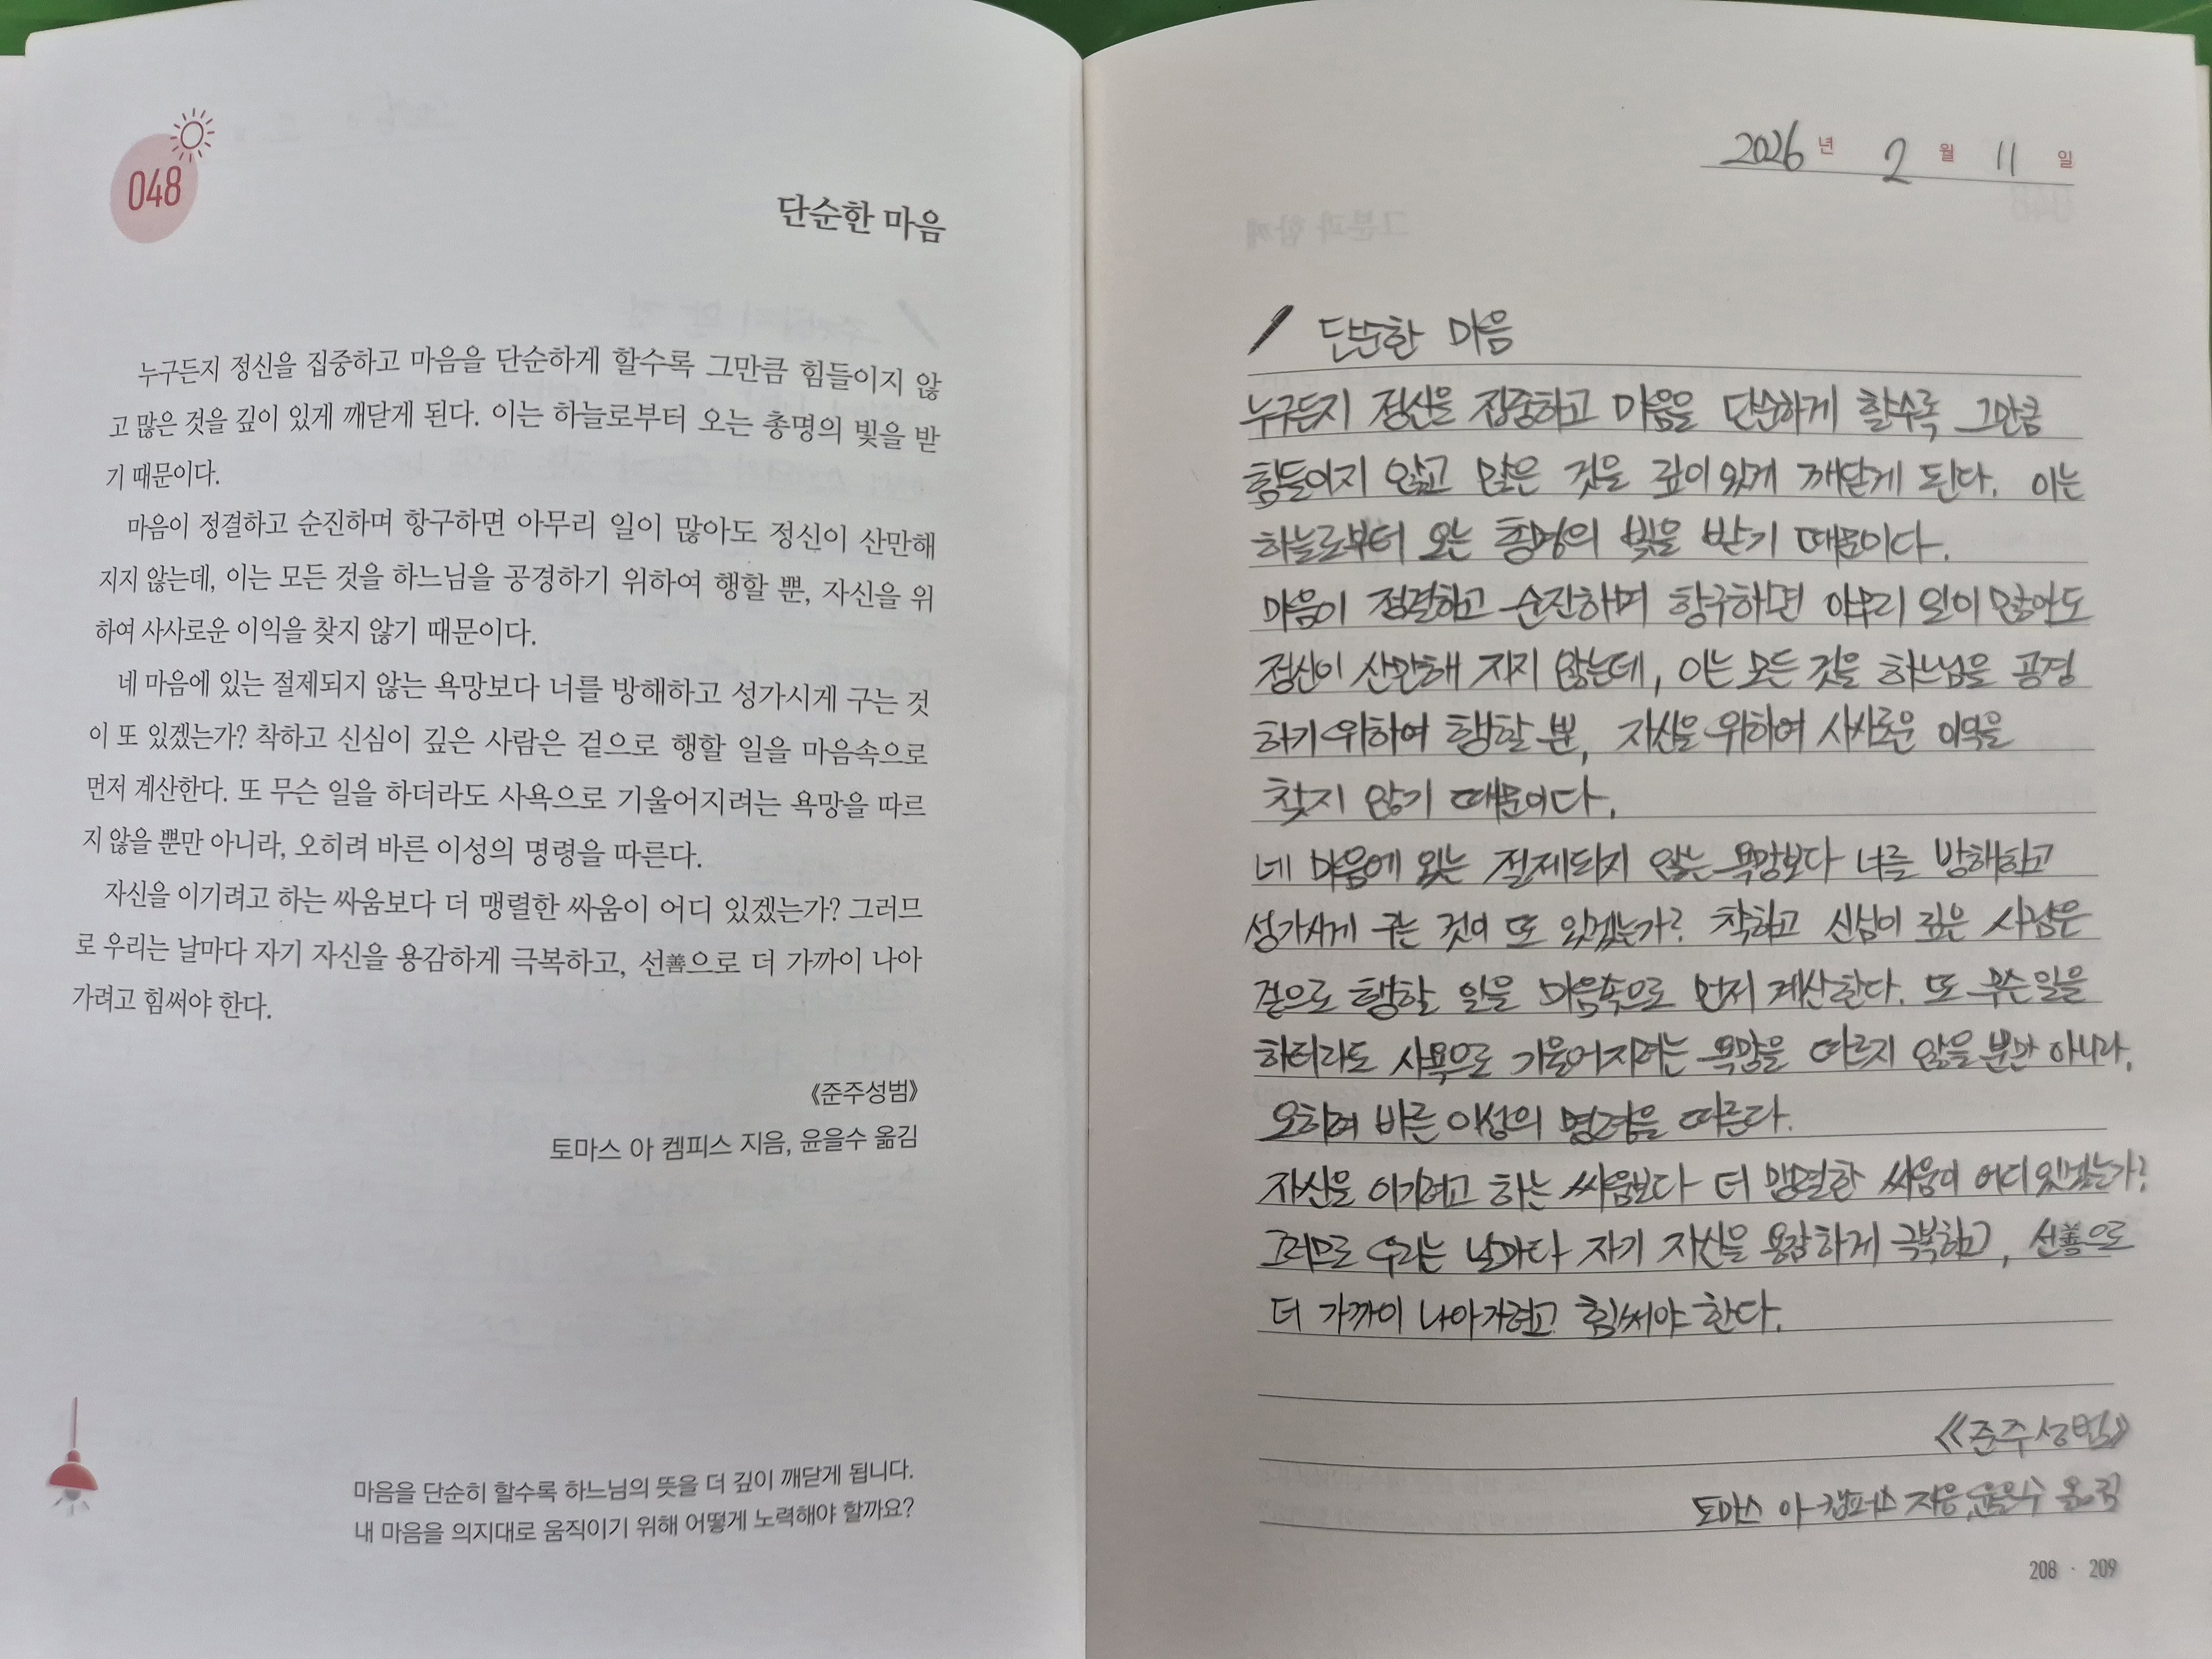 048
단순한 마음
누구든지 정신을 집중하고 마음을 단순하게 할수록 그만큼 힘들이지 않
고 많은 것을 깊이 있게 깨닫게 된다. 이는 하늘로부터 오는 총명의 빛을 받
기 때문이다.
마음이 정결하고 순진하며 항구하면 아무리 일이 많아도 정신이 산만해
지지 않는데, 이는 모든 것을 하느님을 공경하기 위하여 행할 뿐, 자신을 위
하여 사사로운 이익을 찾지 않기 때문이다.
네 마음에 있는 절제되지 않는 욕망보다 너를 방해하고 성가시게 구는 것
이 또 있겠는가? 착하고 신심이 깊은 사람은 겉으로 행할 일을 마음속으로
먼저 계산한다. 또 무슨 일을 하더라도 사욕으로 기울어지려는 욕망을 따르
지 않을 뿐만 아니라, 오히려 바른 이성의 명령을 따른다.
자신을 이기려고 하는 싸움보다 더 맹렬한 싸움이 어디 있겠는가? 그러므
로 우리는 날마다 자기 자신을 용감하게 극복하고, 선善으로 더 가까이 나아
가려고 힘써야 한다.
《준주성범》
토마스 아 켐피스 지음, 윤을수 옮김
마음을 단순히 할수록 하느님의 뜻을 더 깊이 깨닫게 됩니다.
내 마음을 의지대로 움직이기 위해 어떻게 노력해야 할까요?
2026년 2월 11일
단순한 마음
누구든지 정신을 집중하고 마음을 단순하게 할수록 그만큼
힘들이지 않고 많은 것을 깊이 있게 깨닫게 된다. 이는
하늘로부터 오는 총명의 빛을 받기 때문이다.
마음이 정결하고 순진하며 항구하면 아무리 일이 많아도
정신이 산만해 지지 않는데, 이는 모든 것을 하느님을 공경
하기 위하여 행할 뿐, 자신을 위하여 사사로운 이익을
찾지 않기 때문이다.
네 마음에 있는 절제되지 않는 욕망보다 너를 방해하고
성가시게 구는 것이 또 있겠는가? 착하고 신심이 깊은 사람은
겉으로 행할 일을 마음속으로 먼저 계산한다. 또 무슨 일을
하터라도 사욕으로 기울어지려는 욕망을 따르지 않을 뿐만 아니라,
오히려 바른 이성의 명령을 따른다.
자신을 이기려고 하는 싸움보다 더 맹렬한 싸움이 어디 있겠는가?
그러므로 우리는 날마다 자기 자신을 용감하게 극복하고, 선善으로
더 가까이 나아가려고 힘써야 한다.
《준주성범》
토마스 아 켐피스 지음, 윤을수 옮김
208 · 209